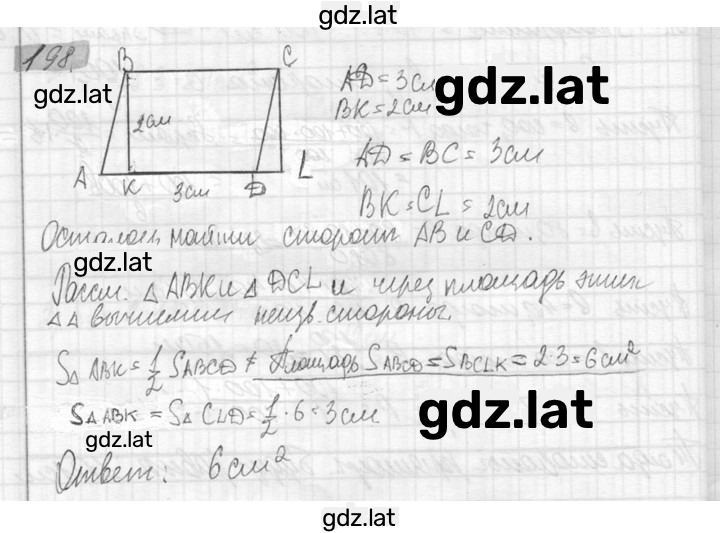 gdz.lat
198
B C
gdz.lat
AD = 3 см
BK = 2 см
gdz.lat
2 см
AD = BC = 3 см
A K 3 см D L
BK = CL = 2 см
Осталось найти сторон AB и CD.
gdz.lat
Рассм. △ ABK и △ DCL и через площадь этих
△△ вычислим неизв. стороны.
S△ ABK = 1/2 SABCD ≠ Площадь SABCD = SBCLK = 2·3 = 6 см²
S△ ABK = S△ CLD = 1/2 · 6 = 3 см
gdz.lat
gdz.lat
Ответ: 6 см²
gdz.lat